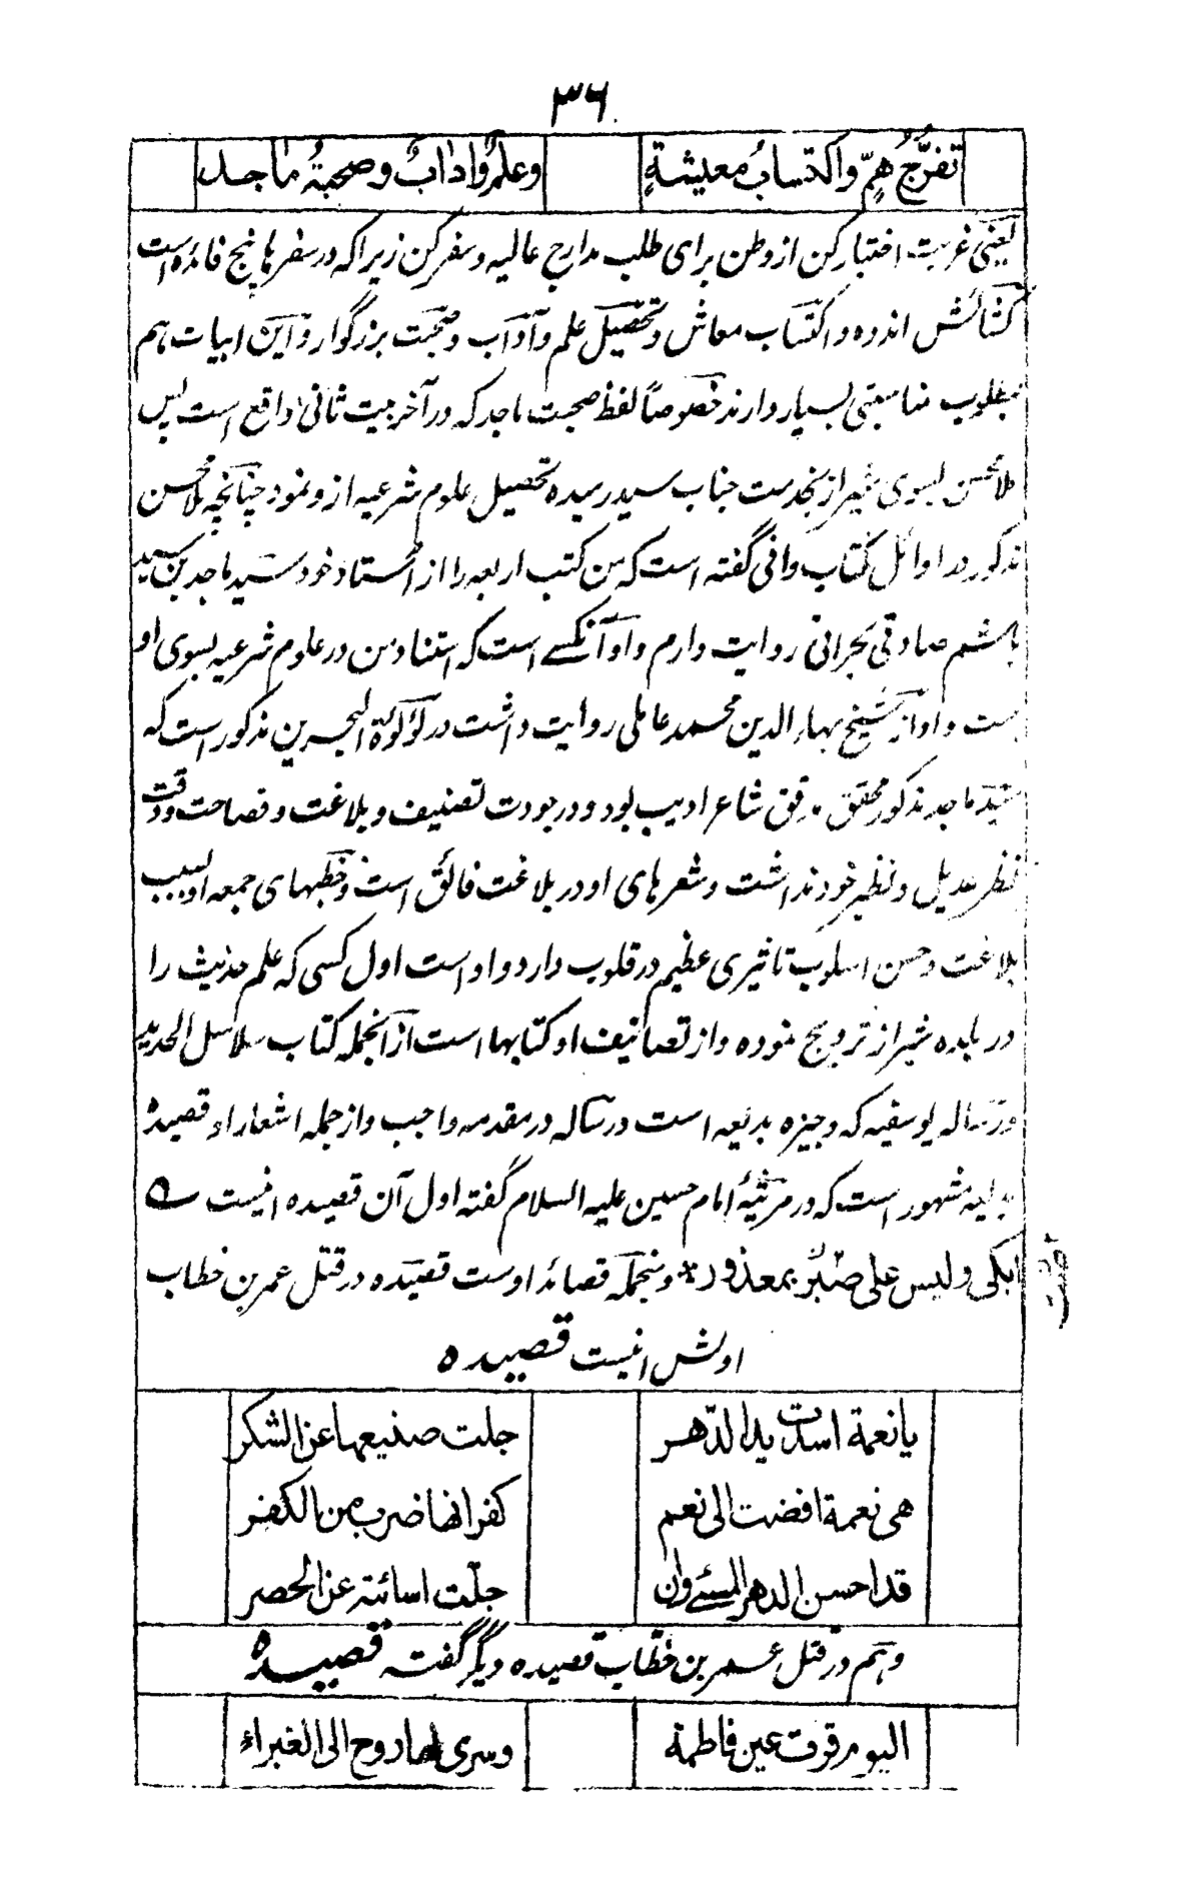 ۳۶
تفرّجُ همٍّ واکتسابُ معیشةٍ وعلمٌ وادابٌ وصحبةُ ماجد
یعنی غربت اختیار کن از وطن برای طلب مدارج عالیه و سفر کن زیراکه در سفرها پنج فائده است
کشائش اندوه و اکتساب معاش و تحصیل علم و آداب و صحبت بزرگوار و این ابیات هم
بمطلوب مناسبتی بسیار دارند خصوصاً لفظ صحبت ماجد که در آخر بیت ثانی واقع است پس
ملا محسن بسوی شیراز بخدمت جناب سید رسیده تحصیل علوم شرعیه ازو نمود چنانچه ملا محسن
مذکور در اوائل کتاب وافی گفته است که من کتب اربعه را از استاد خود سید ماجد بن سید
هاشم صادقی بحرانی روایت دارم و او آنکسے است که استناد من در علوم شرعیه بسوی او
ست و او از شیخ بهاء الدین محمد عاملی روایت داشت در لؤلؤة البحرین مذکور است که
سید ماجد مذکور محقق مدقق شاعر ادیب بود و در جودت تصنیف و بلاغت و فصاحت و دقت
نظر عدیل و نظیر خود نداشت و شعرهای او در بلاغت فائق است و خطبهای جمعه او بسبب
بلاغت و حسن اسلوب تاثیری عظیم در قلوب دارد و او است اول کسی که علم حدیث را
در بلده شیراز ترویج نموده و از تصانیف او کتابها است از آنجمله کتاب سلاسل الحدید
و رساله یوسفیه که وجیزه بدیعه است و رساله در مقدمه واجب و از جمله اشعار او قصیدهٔ
مشهور است که در مرثیهٔ امام حسین علیه السلام گفته اول آن قصیده اینست ؎
ابکی ولیس علی صبرٍ بمعذور * و منجمله قصائد اوست قصیده در قتل عمر بن خطاب
اولش اینست قصیده
یا نعمة اسدت ید الدّهر جلت صنیعها عن الشکر
هی نعمة افضت الی نعم کفرانها ضرب من الکفر
قد احسن الدهر المسئے وان جلّت اسائته عن الحصر
و هم در قتل عمر بن خطاب قصیده دیگر گفته قصیده
الیوم قرت عین فاطمة وسری لها روح الی الغبراء